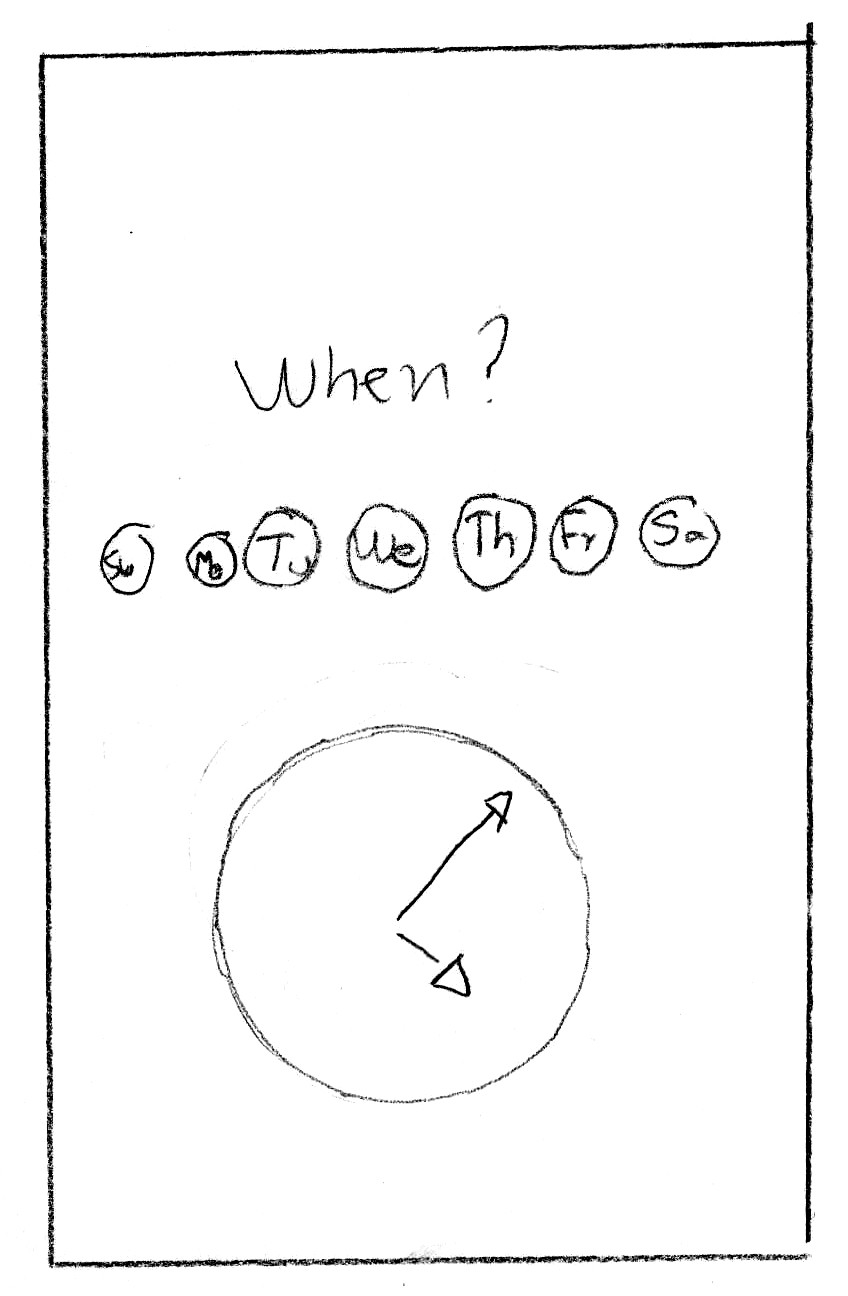 When?
Su Mo Tu We Th Fr Sa